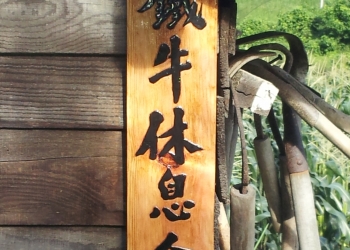 鐵牛休息